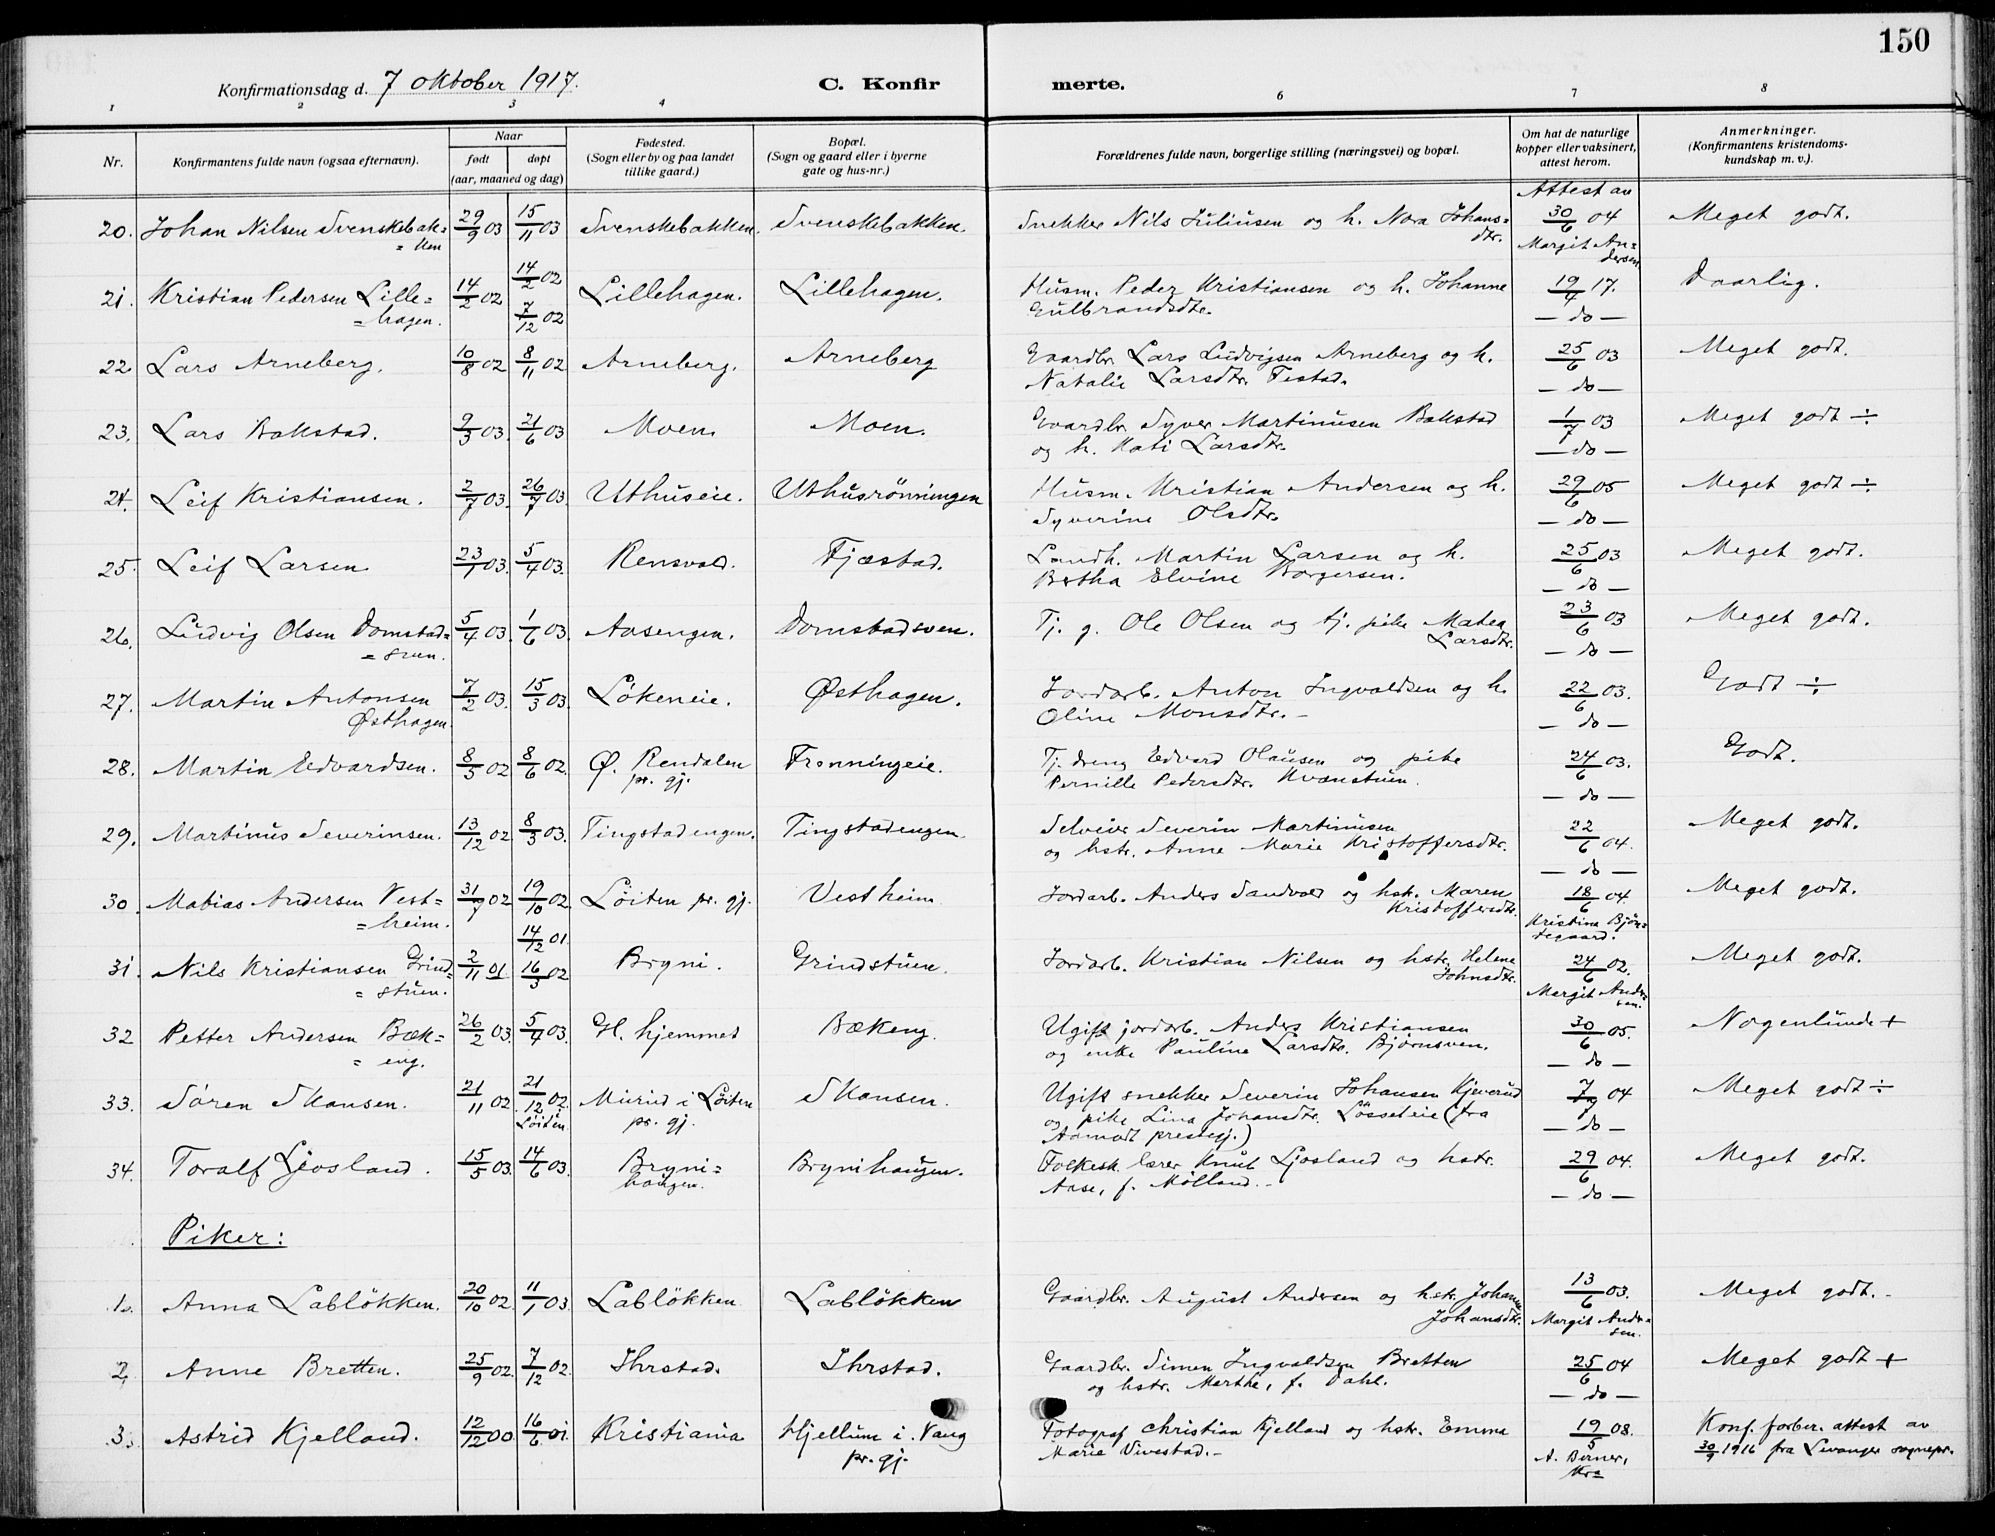 150
Konfirmationsdag d. 7 oktober 1917.
C. Konfir merte.
1 2 3 4 6 7 8
Nr. Konfirmantens fulde navn (ogsaa efternavn). Naar født døpt (aar, maaned og dag) Fødested. (Sogn eller by og paa landet tillike gaard.) Bopæl. (Sogn og gaard eller i byerne gate og hus-nr.) Forældrenes fulde navn, borgerlige stilling (næringsvei) og bopæl. Om hat de naturlige kopper eller vaksinert, attest herom. Anmerkninger. (Konfirmantens kristendoms-kundskap m. v.).
Attest av
20. Johan Nilsen Svenskebak= 29/9 03 15/11 03 Svenskebakken. Svenskebakken. Snekker Nils Juliusen og h. Nora Johans= 30/6 04 Meget godt.
=ken dtr. Margit An=
dersen
21. Kristian Pedersen Lille= 14/2 02 14/2 02 Lillehagen. Lillehagen. Husm. Peder Kristiansen og h. Johanne 19/4 17. Daarlig.
=hagen. 7/12 02 Gulbrandsdtr. — do —
22 Lars Arneberg. 10/8 02 8/11 02 Arneberg. Arneberg Gaardbr. Lars Ludvigsen Arneberg og h. 25/6 03 Meget godt.
Natalie Larsdtr. Testad. — do —
23. Lars Bakstad. 9/3 03. 21/6 03 Moen. Moen. Gaardbr. Syver Martinusen Bakstad 1/7 03 Meget godt ÷
og h. Kati Larsdtr. — do —
24. Leif Kristiansen. 2/7 03. 26/7 03. Uthuseie. Uthusrönningen Husm. Kristian Andersen og h. 29/6 05 Meget godt ÷
Syverine Olsdtr. — do —
25. Leif Larsen. 23/1 03. 5/4 03. Rensvold. Fjæstad. Landh. Martin Larsen og h. 25/6 03 Meget godt.
Bertha Elvine Borgersen. — do —
26. Ludvig Olsen Domstad= 5/4 03. 1/6 03. Aasengen. Domstadsven. Tj. g. Ole Olsen og tj. pike Matea 23/6 03 Meget godt.
=sven. Larsdtr. — do —
27. Martin Antonsen 7/2 03. 15/3 03. Lökeneie. Østhagen. Jordarb. Anton Ingvaldsen og h. 22/6 03. Godt ÷
Østhagen. Oline Monsdtr. — — do —
28. Martin Edvardsen. 8/5 02 8/6 02. Ø. Rendalen Frenningeie. Tj. dreng Edvard Olausen og pike 24/6 03. Godt.
pr. gj. Pernille Pedersdtr. Kvænstuen. — do —
29. Martinus Severinsen. 13/12 02 8/3 03. Tingstadengen. Tingstadengen. Selveier Severin Martinusen 22/6 04. Meget godt.
og hstr. Anne Marie Kristoffersdtr. — do —
30. Matias Andersen Vest= 31/7 02 19/10 02. Löiten pr. gj. Vestheim Jordarb. Anders Sandvold og hstr. Maren 18/6 04. Meget godt.
=heim. Kristoffersdtr. Kristine Bjørn=
stegaard.
31. Nils Kristiansen Grind= 2/11 01 14/12 01. 16/3 02 Bryni. Grindstuen. Jordarb. Kristian Nilsen og hstr. Helene 24/6 02. Meget godt.
=stuen. Johnsdtr. Margit Ander=
sen.
32 Petter Andersen Bæk= 26/2 03. 5/4 03. H. hjemmet Bækeng. Ugift jordarb. Anders Kristiansen 30/6 05. Nogenlunde +
=eng. og enke Pauline Larsdtr. Bjørnsven. — do —
33. Sören Skansen. 21/11 02. 21/12 02. Murud i Löiten Skansen. Ugift snekker Severin Johansen Kjeverud 7/7 04 Meget godt ÷
Löiten pr. gj. og pike Lina Johansdtr. Lösseteie (fra
Aamodt prestegj.) — do —
34. Toralf Ljosland. 15/5 03. 14/6 03. Bryni= Brynihaugen. Folkesk. lærer Knut Ljosland og hstr. 29/6 04. Meget godt.
haugen. Aase, f. Mölland. — — do —
Piker:
1. Anna Lablökken. 20/10 02. 11/1 03. Lablökken. Lablökken Gaardbr. August Andersen og hstr. Johanne 13/6 03. Meget godt.
Johansdtr. Margit Ander=
sen.
2. Anne Bretten. 25/9 02. 7/12 02. Ihrstad. Ihrstad. Gaardbr. Simen Ingvaldsen Bretten 25/6 04 Meget godt +
og hstr. Marthe, f. Dahl. — do —
3. Astrid Kjelland. 12/12 00 16/6 01. Kristiania Hjellum i Vang Fotograf Christian Kjelland og hstr. Emma 19/5 08. Konf. forber. attest av
pr. gj. Marie Vivestad. — A. Berner, 30/9 1916 fra Levanger sognepr.
Kra